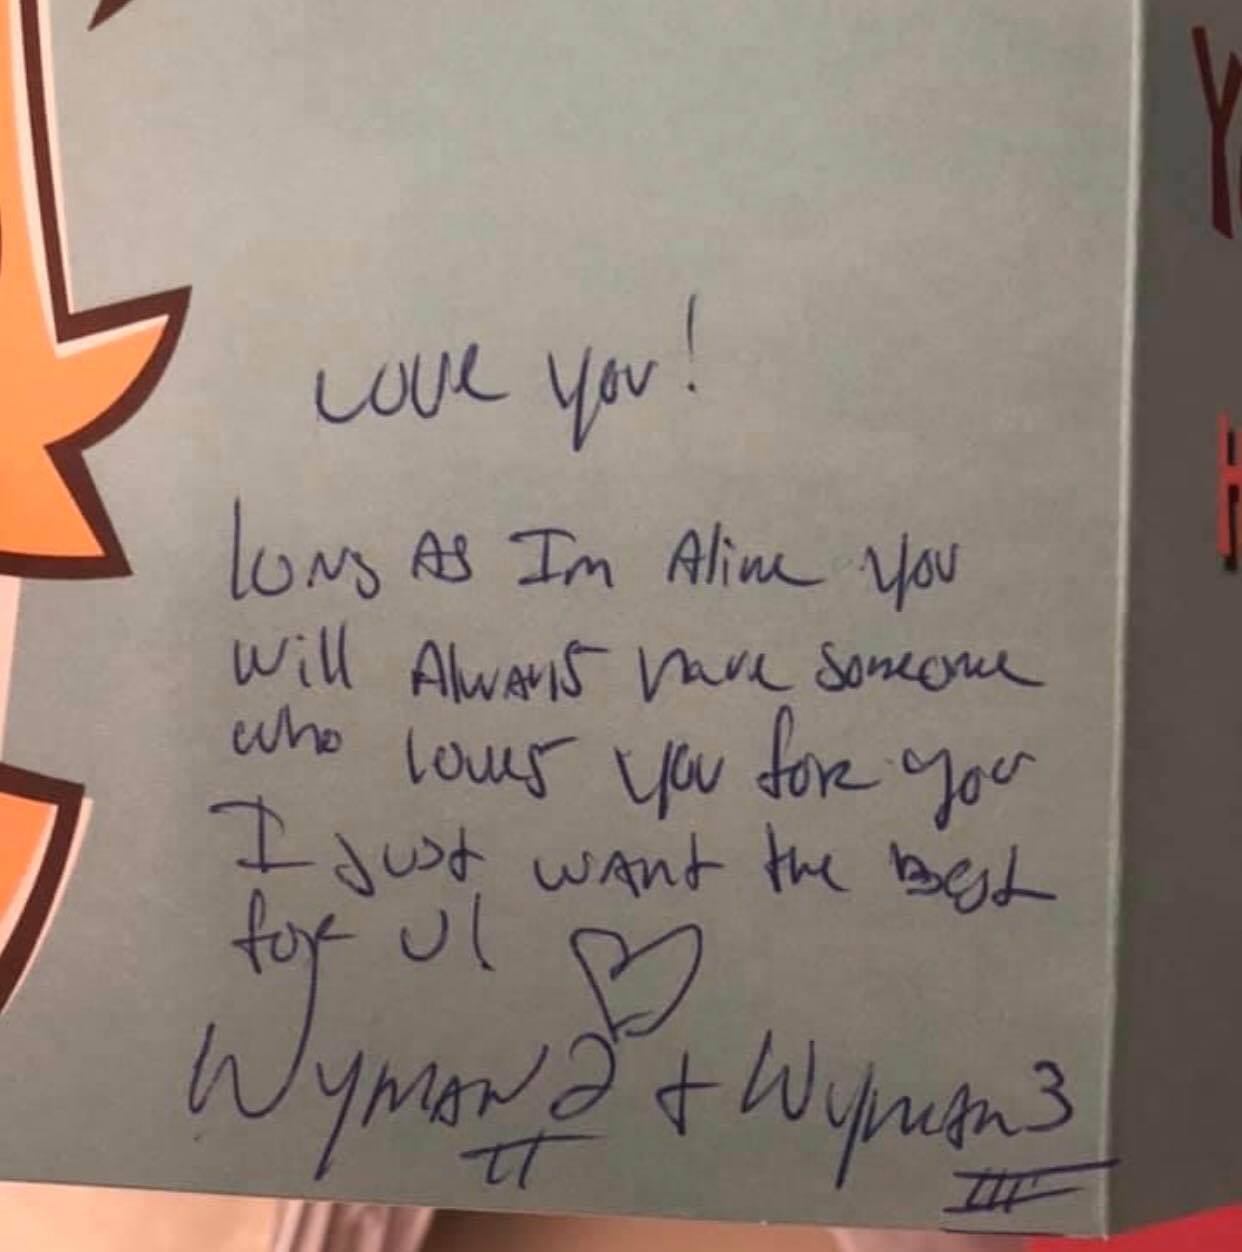 Love you!
Long As Im Alive you
Will Always have someone
who loves you for you
I just want the Best
for U!
Wyman 2 + Wyman 3
II III